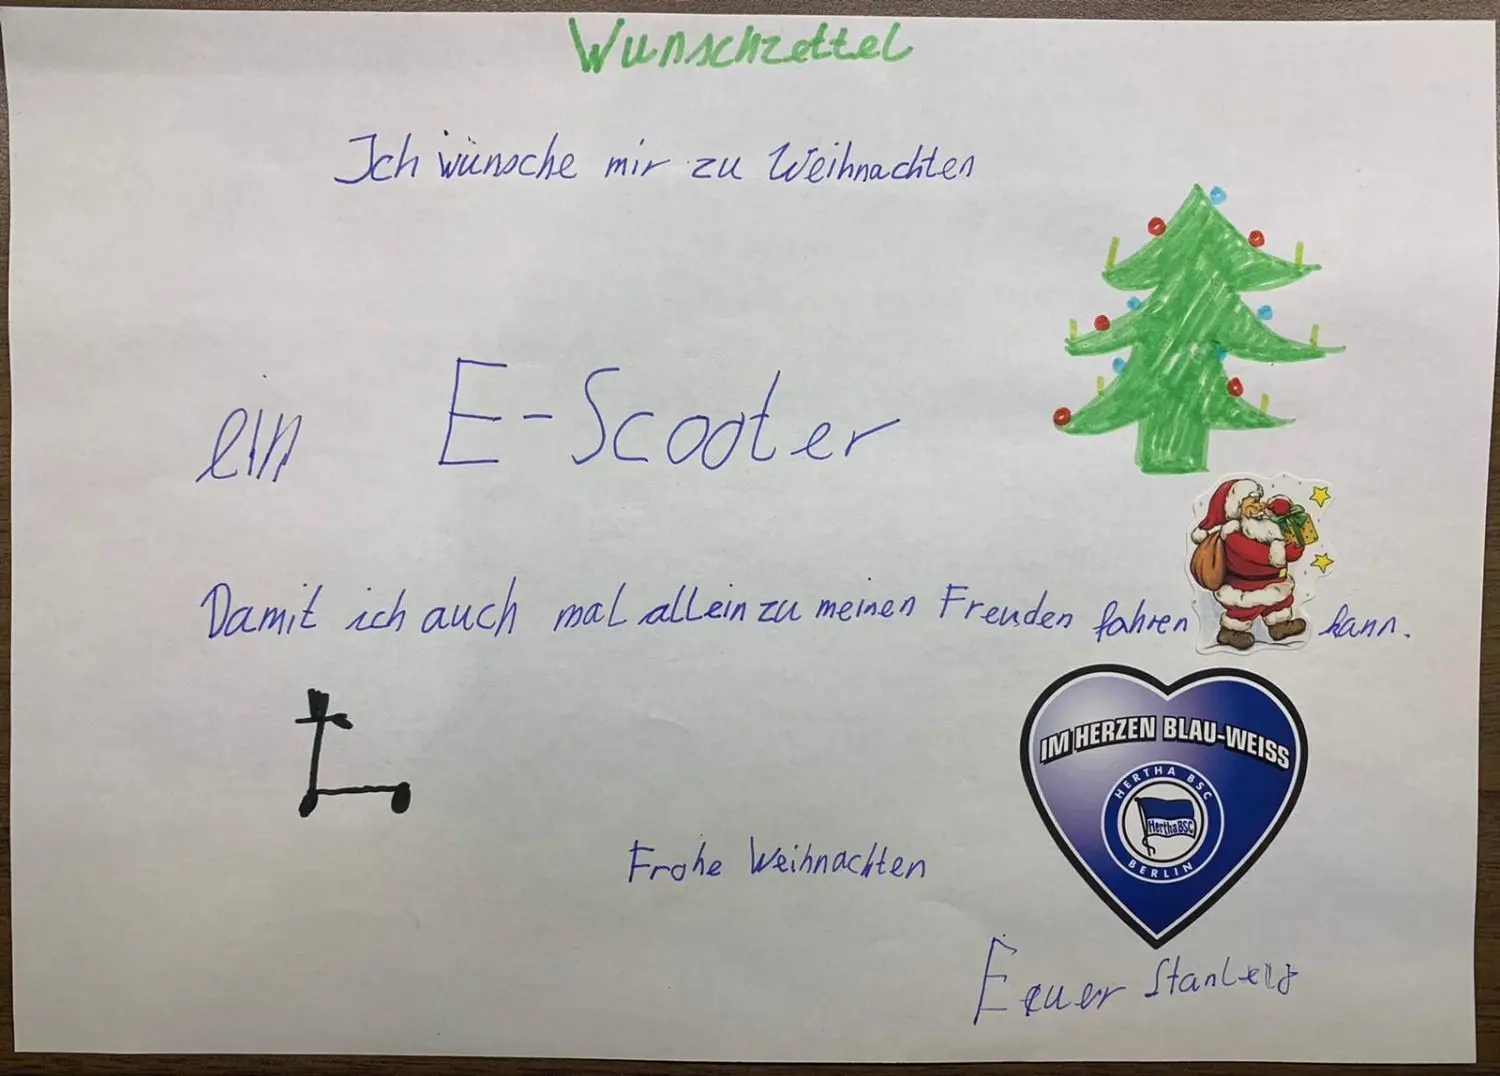 Wunschzettel
Ich wünsche mir zu Weihnachten
ein E-Scooter
Damit ich auch mal allein zu meinen Freuden fahren kann.
IM HERZEN BLAU-WEISS
HERTHA BSC
Hertha BSC
BERLIN
Frohe Weihnachten
Eeuer Stanley